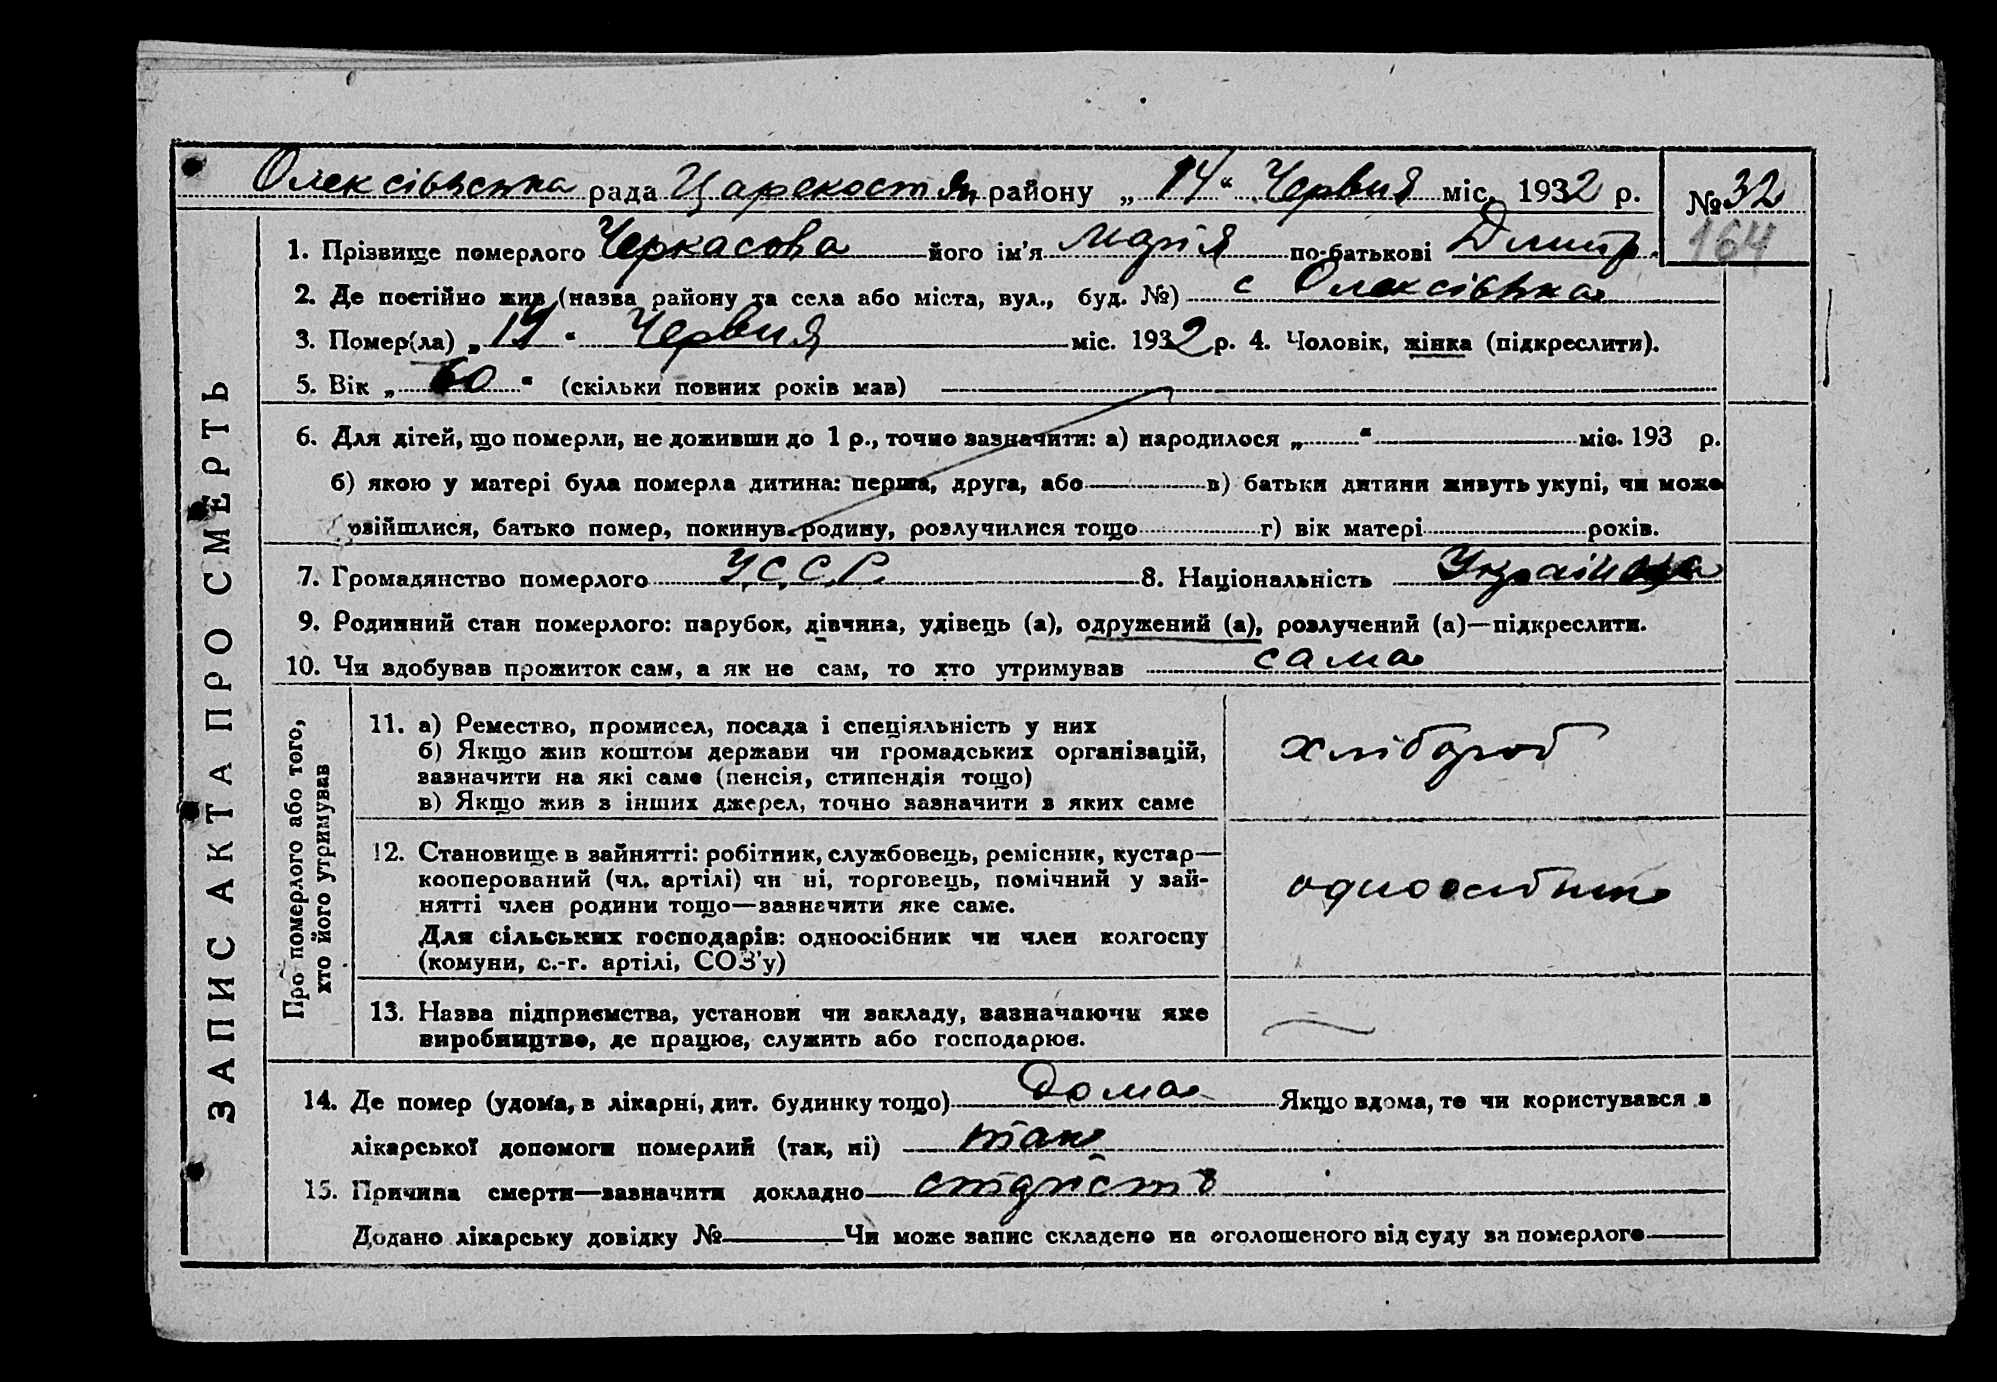 Олексівська рада Царекост район у „ 14 “ Червня міс. 1932 р.
№ 32
164
1. Прізвище померлого Черкасова його ім'я Марія по-батькові Дмитр.
2. Де постійно жив (назва району та села або міста, вул., буд. №) с Олексівка
3. Помер(ла) „ 14 “ Червня міс. 1932 р. 4. Чоловік, жінка (підкреслити).
5. Вік „ 60 “ (скільки повних років мав)
6. Для дітей, що померли, не доживши до 1 р., точно зазначити: а) народилося „ “ міс. 193 р.
б) якою у матері була померла дитина: перша, друга, або в) батьки дитини живуть укупі, чи може
розійшлися, батько помер, покинув родину, розлучилися тощо г) вік матері років.
7. Громадянство померлого У.С.С.Р. 8. Національність Українка
9. Родинний стан померлого: парубок, дівчина, удівець (а), одружений (а), розлучений (а)—підкреслити.
10. Чи здобував прожиток сам, а як не сам, то хто утримував сама
ЗАПИС АКТА ПРО СМЕРТЬ
Про померлого або того,
хто його утримував
11. а) Ремество, промисел, посада і спеціяльність у них
б) Якщо жив коштом держави чи громадських організацій,
зазначити на які саме (пенсія, стипендія тощо)
в) Якщо жив з інших джерел, точно зазначити з яких саме
хлібороб
12. Становище в зайнятті: робітник, службовець, ремісник, кустар—
кооперований (чл. артілі) чи ні, торговець, помічний у зай-
нятті член родини тощо—зазначити яке саме.
Для сільських господарів: одноосібник чи член колгоспу
(комуни, с.-г. артілі, СОЗ'у)
одноосібник
13. Назва підприємства, установи чи закладу, зазначаючи яке
виробництво, де працює, служить або господарює.
14. Де помер (удома, в лікарні, дит. будинку тощо) Дома Якщо вдома, то чи користувався з
лікарської допомоги померлий (так, ні) так
15. Причина смерти—зазначити докладно старість
Додано лікарську довідку № Чи може запис складено на оголошеного від суду за померлого